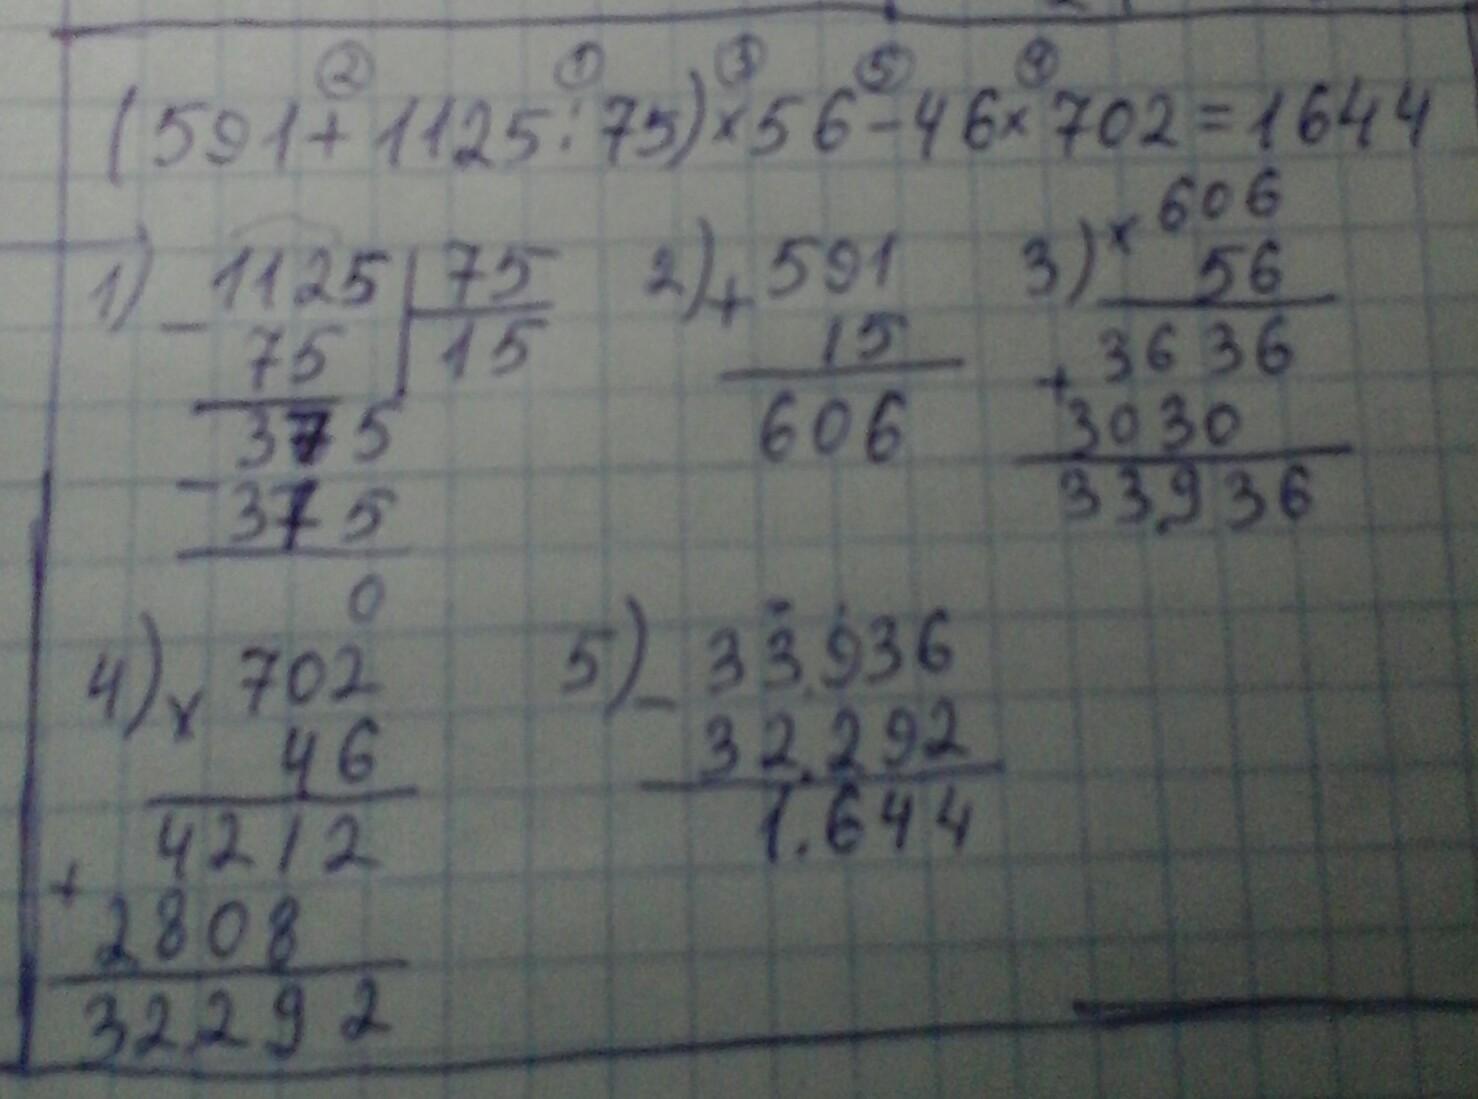 ② ① ③ ⑤ ④
(591+1125:75)×56-46×702=1644
1) 1125 | 75
- 75 | 15
375
- 375
0
2) + 591
15
606
3) × 606
56
3636
+ 3030
33.936
4) × 702
46
4212
+ 2808
32292
5) - 33.936
32.292
1.644